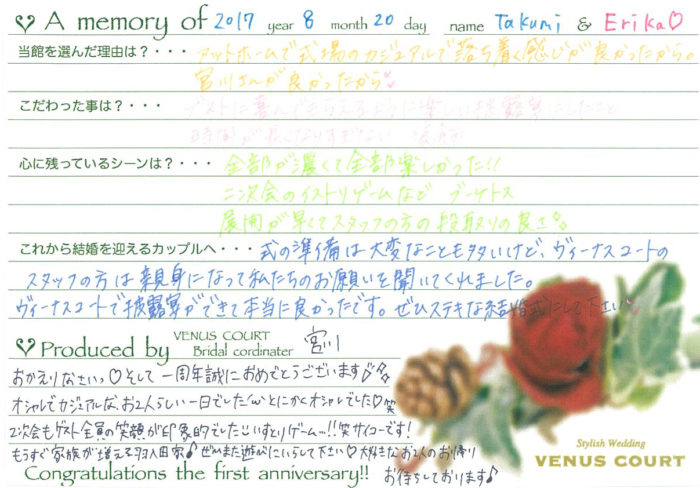 A memory of 2017 year 8 month 20 day name Takumi & Erika♡
当館を選んだ理由は？・・・ アットホームで式場のカジュアルで落ち着く感じが良かったから。
宮川さんが良かったから
こだわった事は？・・・ ゲストに喜んでもらえるように楽しい披露宴にしたこと
時間が長くなりすぎない
心に残っているシーンは？・・・ 全部が濃くて全部楽しかった！！
二次会のイストリゲームなど ブーケトス
展開が早くてスタッフの方の段取りの良さ
これから結婚を迎えるカップルへ・・・ 式の準備は大変なことも多いけど、ヴィーナスコートの
スタッフの方は親身になって私たちのお願いを聞いてくれました。
ヴィーナスコートで披露宴ができて本当に良かったです。ぜひステキな結婚式にして下さい
Produced by VENUS COURT
Bridal cordinater 宮川
おかえりなさいっ♡そして一周年誠におめでとうございます♪
オシャレでカジュアルな、お2人らしい一日でした(^^)とにかくオシャレでした♡笑
2次会もゲスト全員の笑顔が印象的でした!!いすとりゲームッ!!笑サイコーです！
もうすぐ家族が増える羽田家♪ぜひまた遊びにいらして下さい♡大好きなお2人のお帰り
お待ちしております♪
Congratulations the first anniversary!!
Stylish Wedding
VENUS COURT